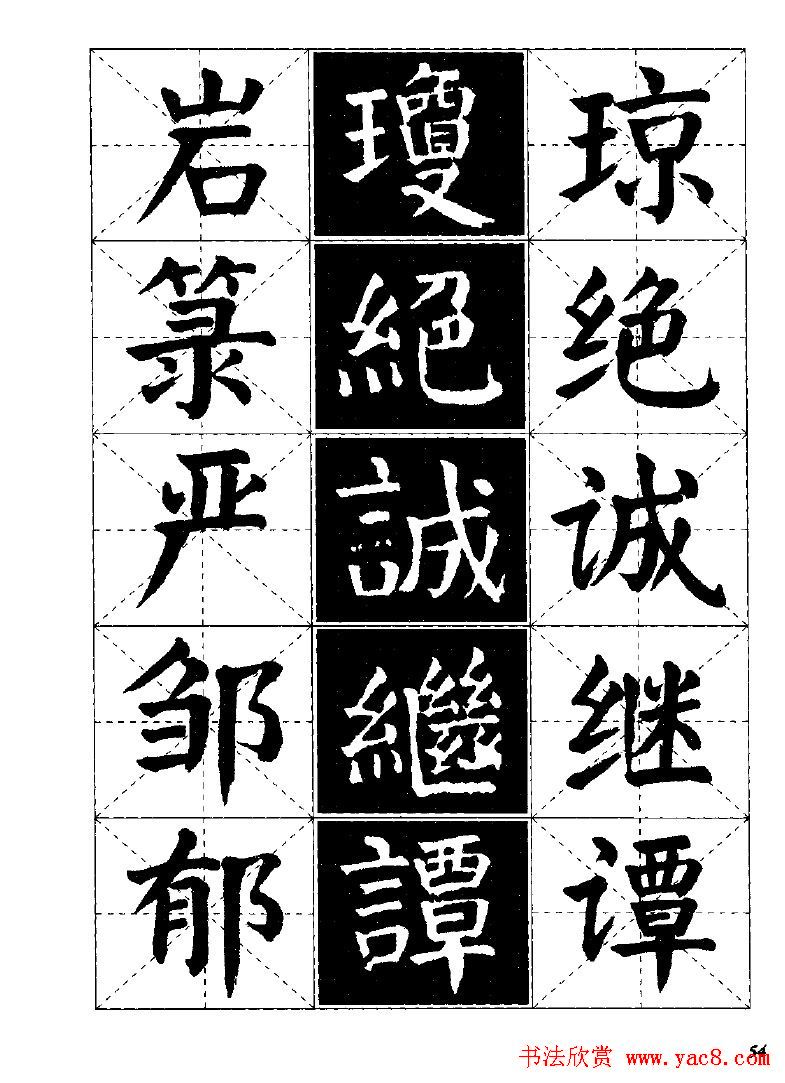 岩 瓊 琼
篆 絕 绝
严 誠 诚
邹 繼 继
郁 譚 谭
54
书法欣赏 www.yac8.com